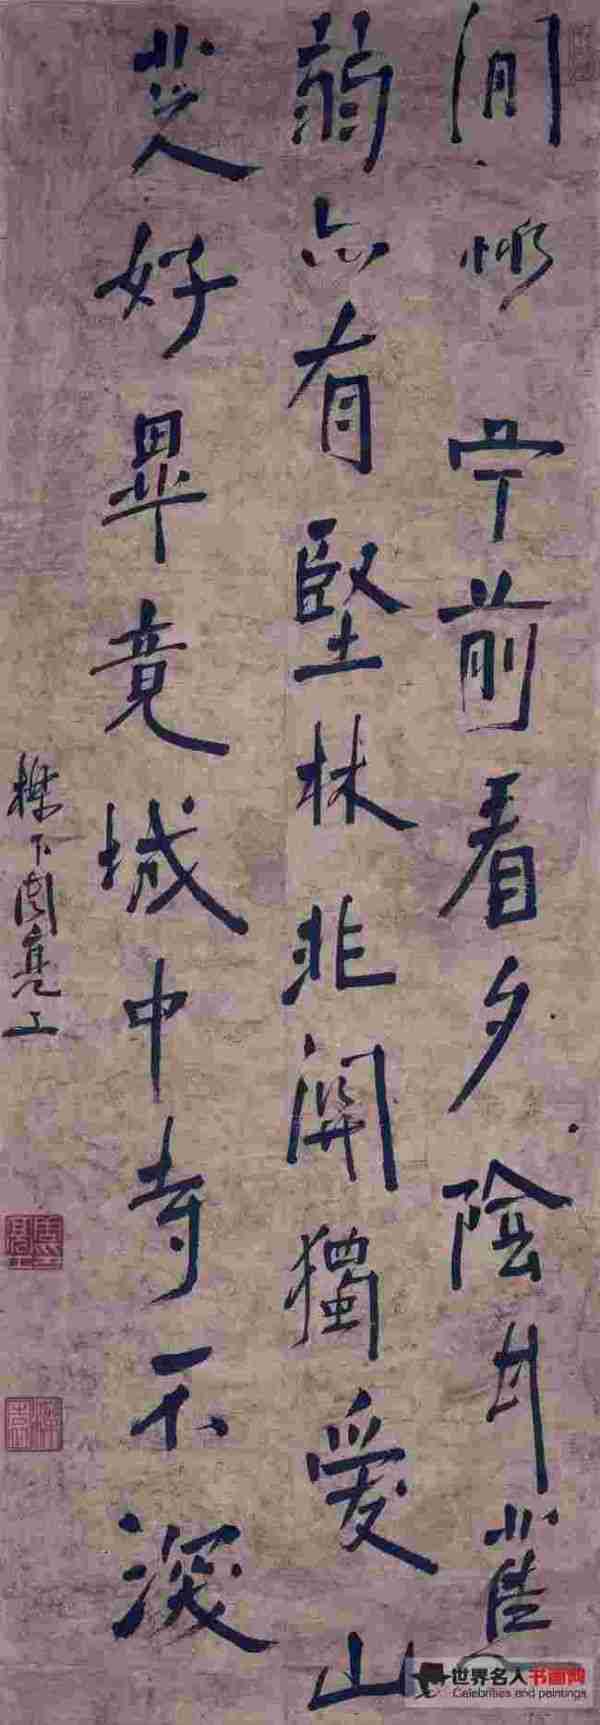 閒宁前看夕陰
弱亦有堅林非關獨愛山
好畢竟城中寺不深
櫟下周亮工
世界名人书画网
Celebrities and paintings